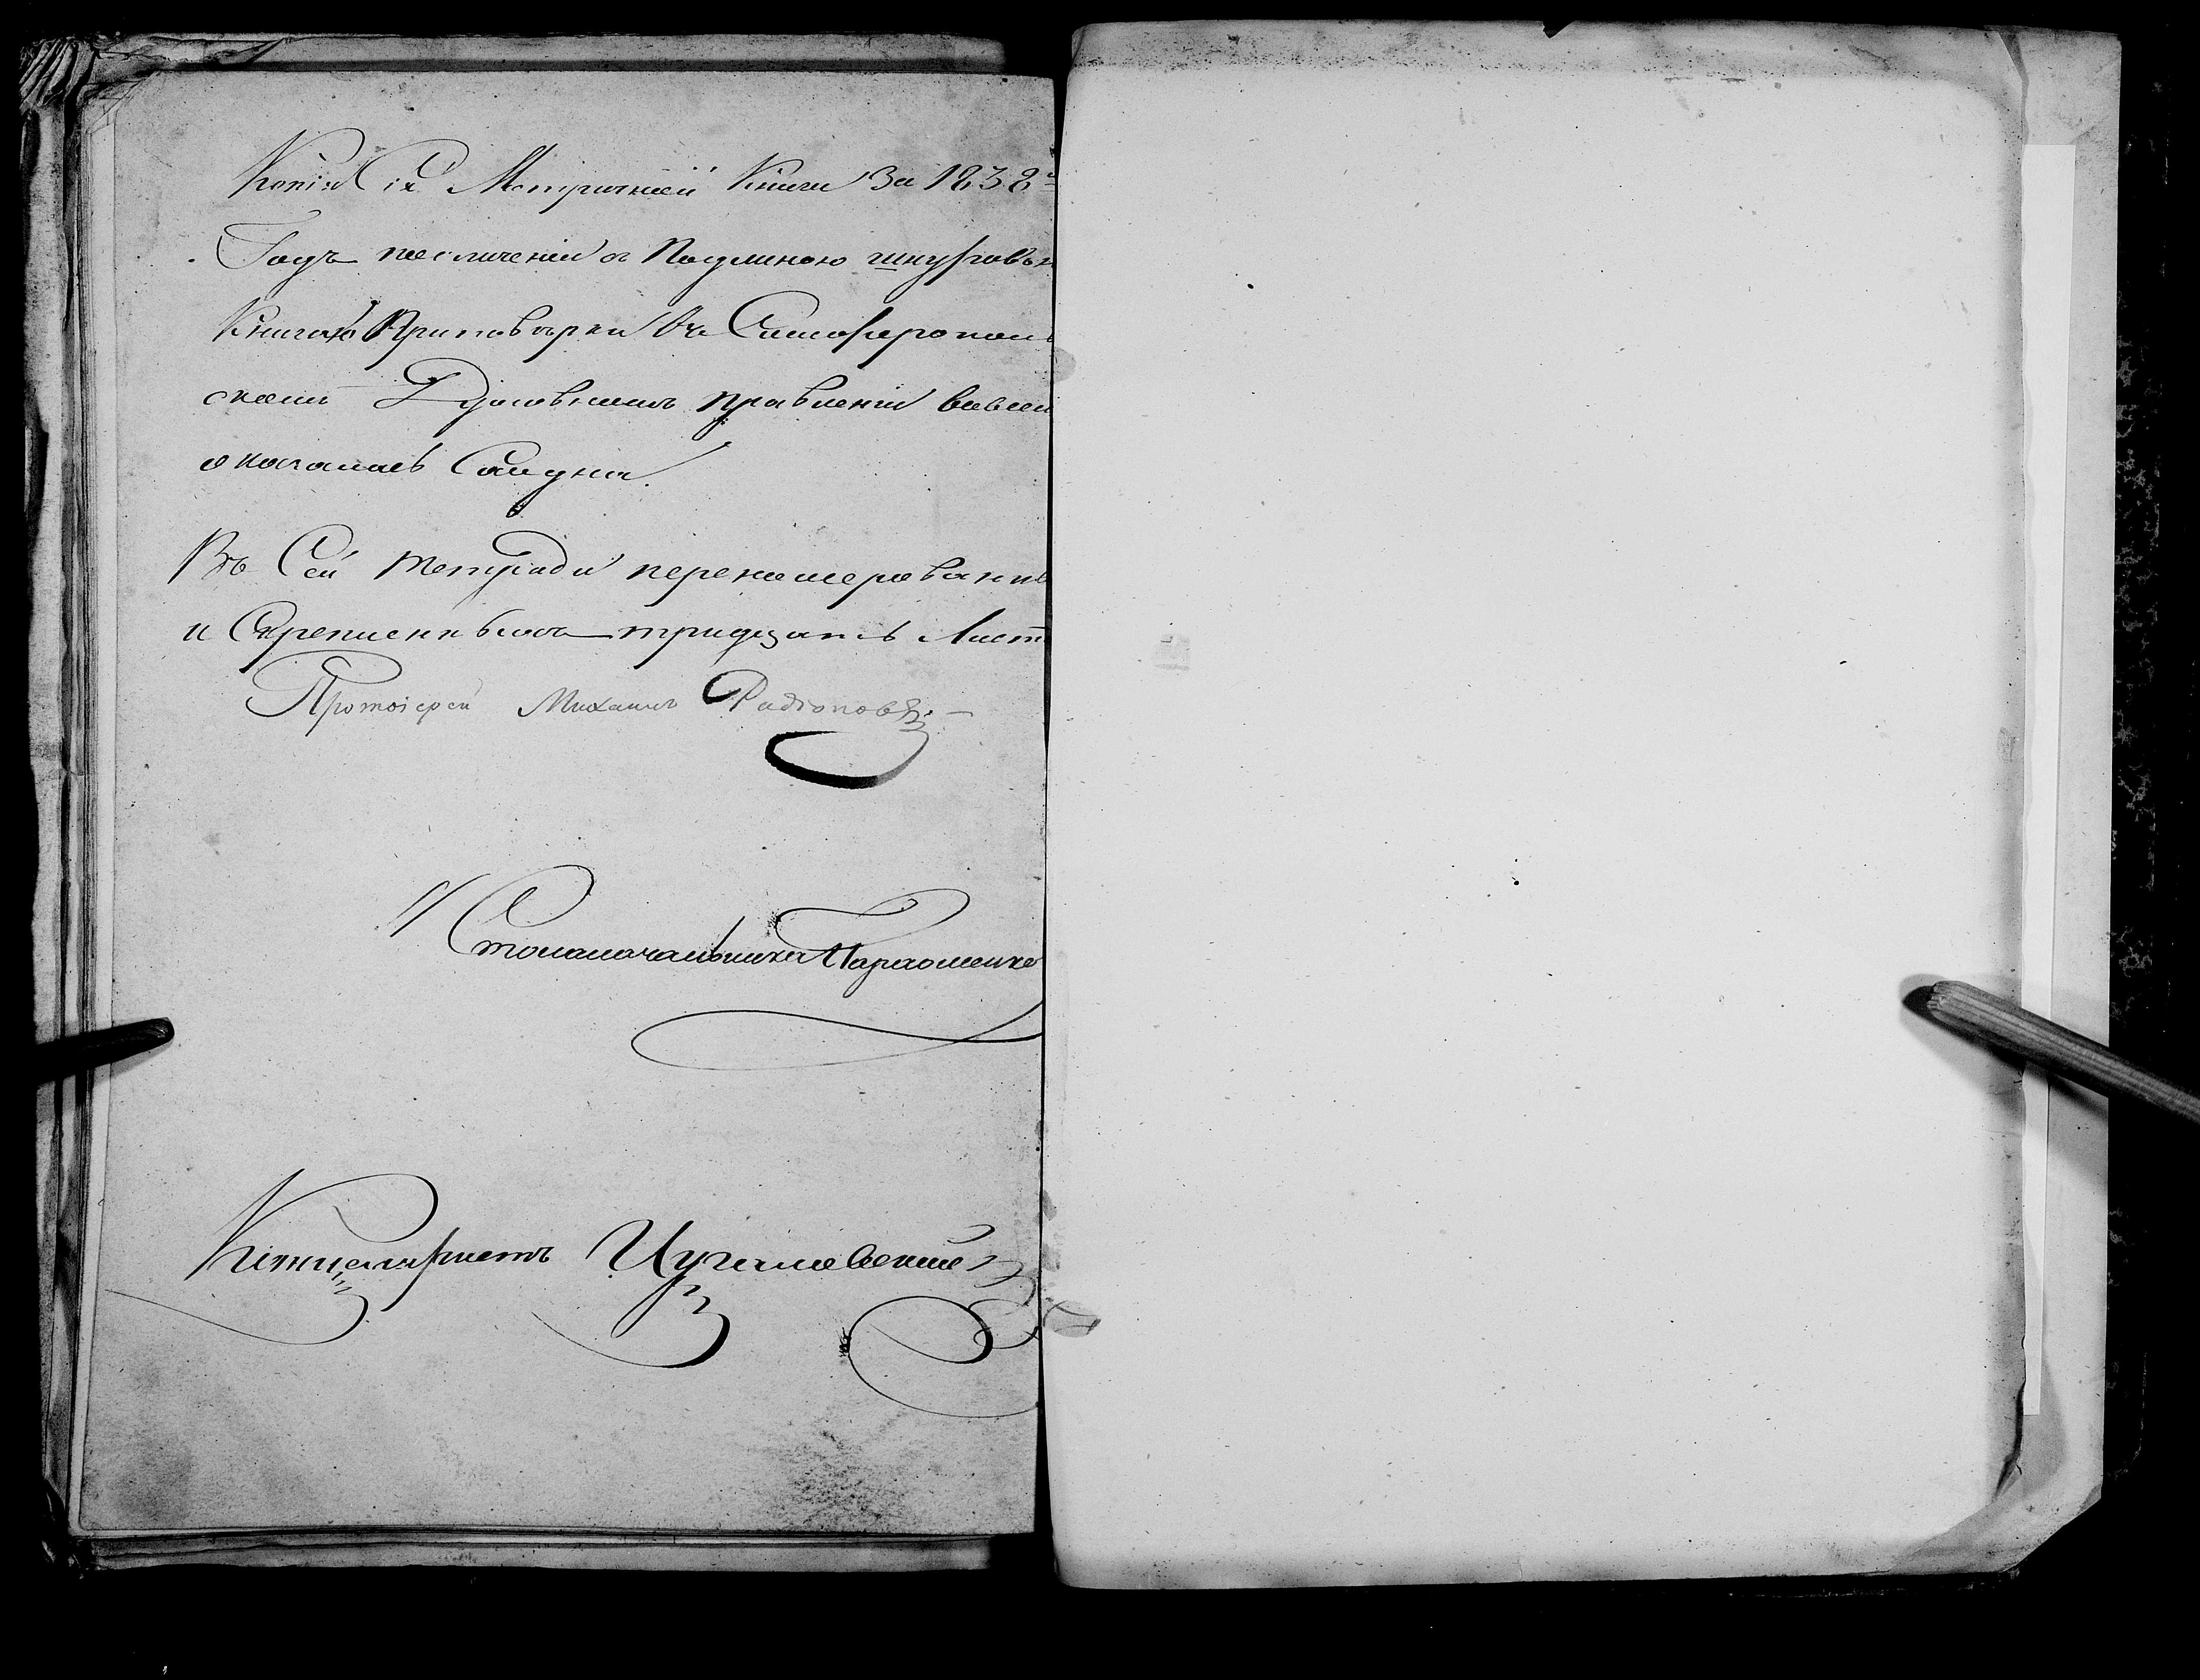 Копія Сія Метричней Книги За 1838й
Годъ по сличеніи съ Подлиною шнуров
Книгою При поверки въ Симферополь
скомъ Духовномъ правленіи во всем
оказалась Сходна.
Въ Сей тетради перенумерованны
и Скрепленныхъ тридцать Лист
Протоіерей Михаилъ Родіоновъ
Столоначальника Пархоменко
Канцеляристъ